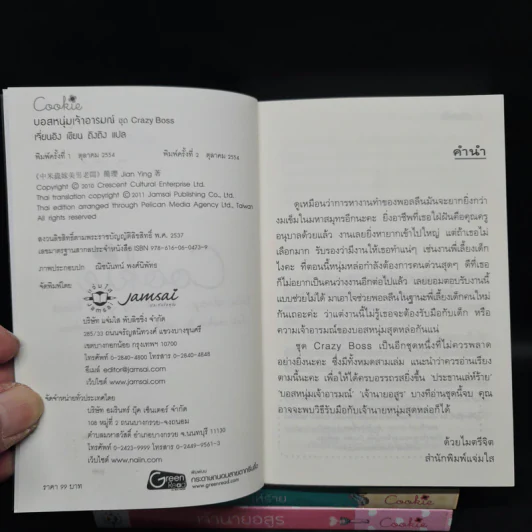 Cookie
บอสหนุ่มเจ้าอารมณ์ ชุด Crazy Boss
เจี่ยนอิง เขียน ถิงถิง แปล
พิมพ์ครั้งที่ 1 ตุลาคม 2554 พิมพ์ครั้งที่ 2 ตุลาคม 2554
簡瓔 Jian Ying 著
Copyright © 2010 Crescent Cultural Enterprise Ltd.
Thai translation copyright © 2011 Jamsai Publishing Co., Ltd.
Thai edition arranged through Pelican Media Agency Ltd., Taiwan
All rights reserved
สงวนลิขสิทธิ์ตามพระราชบัญญัติลิขสิทธิ์ พ.ศ. 2537
เลขมาตรฐานสากลประจำหนังสือ ISBN 978-616-06-0473-9
ภาพประกอบปก ณัชนันทน์ พงศ์นิพัทธ
จัดพิมพ์โดย
jamsai
บริษัท แจ่มใส พับลิชชิ่ง จำกัด
285/33 ถนนจรัญสนิทวงศ์ แขวงบางขุนศรี
เขตบางกอกน้อย กรุงเทพฯ 10700
โทรศัพท์ 0-2840-4800 โทรสาร 0-2840-4899
อีเมล์ editor@jamsai.com
เว็บไซต์ www.jamsai.com
จัดจำหน่ายทั่วประเทศโดย
บริษัท อมรินทร์ บุ๊ค เซ็นเตอร์ จำกัด
108 หมู่ที่ 2 ถนนบางกรวย-จงถนอม
ตำบลมหาสวัสดิ์ อำเภอบางกรวย จ.นนทบุรี 11130
โทรศัพท์ 0-2423-9999 โทรสาร 0-2449-9561-3
เว็บไซต์ www.naiin.com
Green
Read
www.greenread.com
ราคา 99 บาท
คำนำ
ดูเหมือนว่าการหางานทำของพอลลีนมันจะยากยิ่งกว่า
งมเข็มในมหาสมุทรอีกนะคะ ยิ่งอาชีพที่เธอใฝ่ฝันคือคุณครู
อนุบาลด้วยแล้ว งานเลยยิ่งหายากเข้าไปใหญ่ แต่ถ้าเธอไม่
เลือกมาก รับรองว่ามีงานให้เธอทำแน่ๆ เช่นงานพี่เลี้ยงเด็ก
ไงคะ ที่ตอนนี้หนุ่มหล่อกำลังต้องการคนด่วนสุดๆ ดีที่เธอ
ก็ไม่อยากเป็นคนว่างงานอีกต่อไปแล้ว เลยยอมตอบรับงานนี้
แบบช่วยไม่ได้ มาเอาใจช่วยพอลลีนในฐานะพี่เลี้ยงเด็กคนใหม่
กันเถอะค่ะ ว่าแต่งานนี้ไม่รู้เธอจะต้องรับมือกับเด็ก หรือ
ความเจ้าอารมณ์ของบอสหนุ่มสุดหล่อกันแน่
ชุด Crazy Boss เป็นอีกชุดหนึ่งที่ไม่ควรพลาด
อย่างยิ่งนะคะ ซึ่งมีทั้งหมดสามเล่ม แนะนำว่าควรอ่านเรียง
ตามนี้นะคะ เพื่อให้ได้ครบอรรถรสยิ่งขึ้น 'ประธานเล่ห์ร้าย'
'บอสหนุ่มเจ้าอารมณ์' 'เจ้านายอสูร' บางทีอ่านชุดนี้จบ คุณ
อาจจะพบวิธีรับมือกับเจ้านายหนุ่มสุดหล่อก็ได้
ด้วยไมตรีจิต
สำนักพิมพ์แจ่มใส
Cookie
เจ้านายอสูร
Cookie